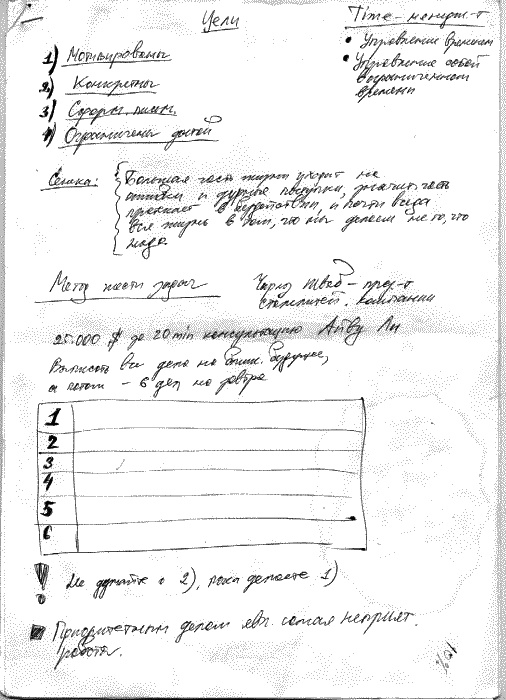 Цели
Time-менедж-т
• Управление временем
• Управление собой
в ограниченном
времени
1) Мотивированы
2) Конкретны
3) Сформ. письм.
4) Ограничены датой
Сенека: Большая часть жизни уходит на
ошибки и дурные поступки, значит. часть
протекает в бездействии, и почти всегда
вся жизнь в том, что мы делаем не то, что
надо
Метод шести задач
Чарльз Шваб - през-т
сталелитей. компании
25.000 $ за 20 min консультацию Айви Ли
Выписать все дела на ближ. будущее,
а потом - 6 дел на завтра
1
2
3
4
5
6
! Не думайте о 2), пока делаете 1)
Приоритетным делом явл. самая неприят.
работа.